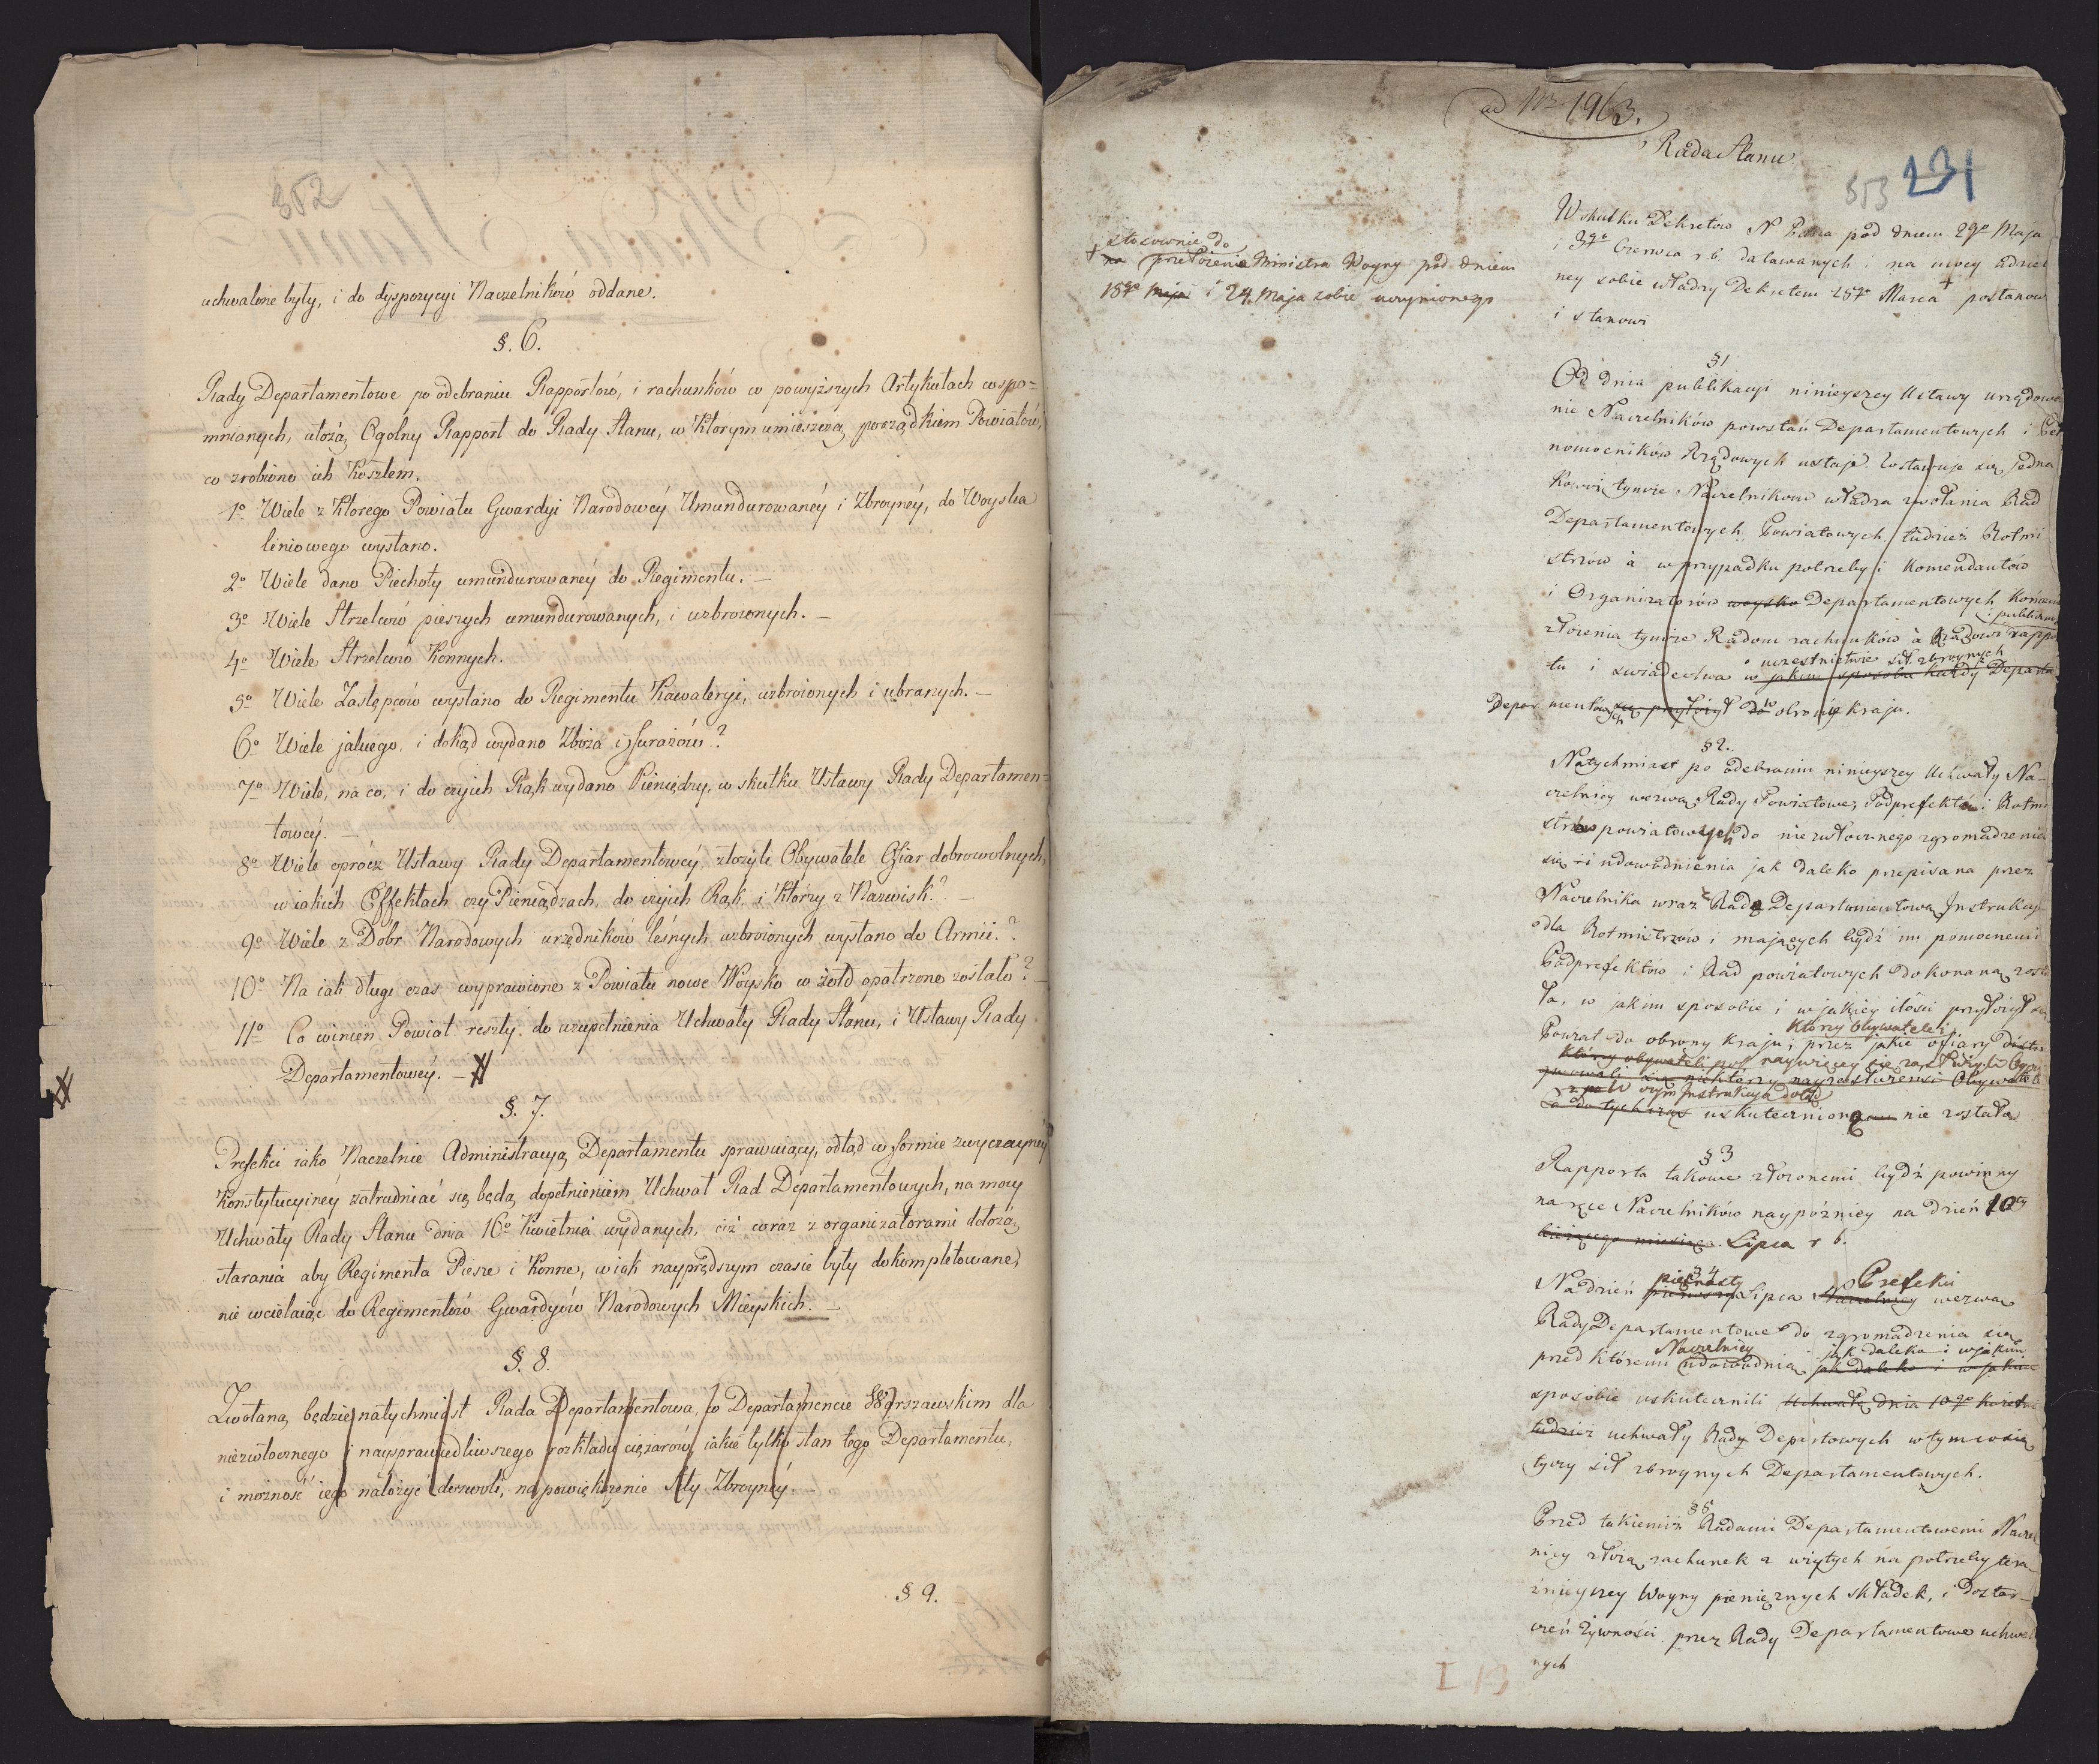 352
uchwalone były, i do dyspozycyi Naczelników oddane.
§. 6.
Rady Departamentowe po odebraniu Rapportów, i rachunków w powyższych Artykułach wspo=
mnianych, ułożą Ogolny Rapport do Rady Stanu, w którym umieszczą porządkiem Powiatów,
co zrobiono ich Kosztem.
1o Wiele z ktorego Powiatu Gwardyi Narodowéy Umundurowanéy i Zbroynéy, do Woyska
liniowego wysłano.
2o Wiele dano Piechoty umundurowanéy do Regimentu. —
3o Wiele Strzelców pieszych umundurowanych, i uzbroionych. —
4o Wiele Strzelców Konnych.
5o Wiele Zastępców wysłano do Regimentu Kawaleryi, uzbroionych i ubranych. —
6o Wiele jakiego, i dokąd wydano Zboża i furażów?
7o Wiele, na co, i do czyich Rąk wydano Pieniędzy, w skutku Ustawy Rady Departamen=
towéy. —
8o Wiele oprócz Ustawy Rady Departamentowéy, złożyli Obywatele Ofiar dobrowolnych,
w iakich Effektach czy Pieniądzach, do czyich Rąk, i Którzy z Nazwisk? —
9o Wiele z Dóbr Narodowych urzędników leśnych uzbroionych wysłano do Armii.?
10o Na iak długi czas wyprawione z Powiatu nowe Woysko w żołd opatrzone zostało? —
11o Co winien Powiat reszty do uzupełnienia Uchwały Rady Stanu, i Ustawy Rady
Departamentowéy. —
§. 7.
Prefekci iako Naczelnie Administracyą Departamentu sprawuiący, odtąd w formie zwyczaynéy
Konstytucyinéy zatrudniać się będą dopełnieniem Uchwał Rad Departamentowych, na mocy
Uchwały Rady Stanu dnia 16o Kwietnia wydanych, ciż wraz z organizatorami dołożą
starania aby Regimenta Piesze i Konne, w iak nayprędszym czasie były dokompletowane,
nie wcielaiąc do Regimentów Gwardyów Narodowych Mieyskich. —
§. 8.
Zwołaną będzie natychmiast Rada Departamentowa, w Departamencie Warszawskim dla
niezwłocznego i naysprawiedliwszego rozkładu ciężarów, iakie tylko stan tego Departamentu,
i możność iego nałożyć dozwoli, na powiększenie Siły Zbroynéy. —
§ 9.
ad Nr 1963.
Rada Stanu
353 231
W skutku Dekretów N Pana pod dniem 29go Maja
i 3go Czerwca r b. datowanych i na mocy udzielo
ney sobie władzy Dekretem 25go Marca + postanow
i stanowi
stosownie do
+ na przełożenie Ministra Woyny pod dniem
18go Maja i 24 Maja sobie uczynionego
§ 1
Od dnia publikacyi ninieyszey Ustawy urzędowa
nie Naczelników powstań Departamentowych i Peł
nomocników Rządowych ustaje. Zostawuje się jedna
kowoż tymże Naczelnikom władza zwołania Rad
Departamentowych, Powiatowych, tudzież Rotmi
strzów à w przypadku potrzeby i Komendantów
i Organizatorów woyska Departamentowych końcem
i publiczne
złożenia tymże Radom rachunków à Rządowi rappo
o uczestnictwie sił zbroynych
tu i świadectwa w jakim sposobie każdy Departa
Depar mentowych się przyłożył do w obronie kraju.
§ 2.
Natychmiast po odebraniu ninieyszey Uchwały Na-
czelnicy wezwą Rady Powiatowe, Podprefektów i Rotmi
strzów powiatowych do niezwłocznego zgromadzenia
się i udowodnienia jak daleko przepisana przez
Naczelnika wraz z Radą Departamentową Instrukcya
dla Rotmistrzów i mających bydź im pomocnemi
Podprefektów i Rad powiatowych dokonaną zosta
ła, w jakim sposobie i w jakiey ilości przyłożył się
którzy Obywatele i
Powiat do obrony kraju i przez jakie ofiary
którzy obywateli naywięcey się zasłużyli
się niektórzy nayzasłużeńsi Obywatele
Instrukcya dotąd
à dotychczas uskutecznioną nie została
§ 3
Rapporta takowe złożonemi bydź powinny
na ręce Naczelników naypóźniey na dzień 10
bieżącego miesiąca Lipca r b.
§ 4
piętnasty Prefekci
Na dzień pierwszy Lipca Naczelnicy wezwą
Rady Departamentowe do zgromadzenia się
Naczelnicy jak daleko i w jakim
przed któremi udowodnią jak daleko i w jakim
sposobie uskutecznili Uchwałę dnia 10go kwietn
tudzież uchwały Rady Departowych w tym
sił zbroynych Departamentowych.
§ 5
Przed takiemiż Radami Departamentowemi Naczel
nicy złożą rachunek z wziętych na potrzeby tera
źnieyszey Woyny pieniężnych składek, i dostar-
czeń żywności przez Rady Departamentowe uchwalo
nych
I 13